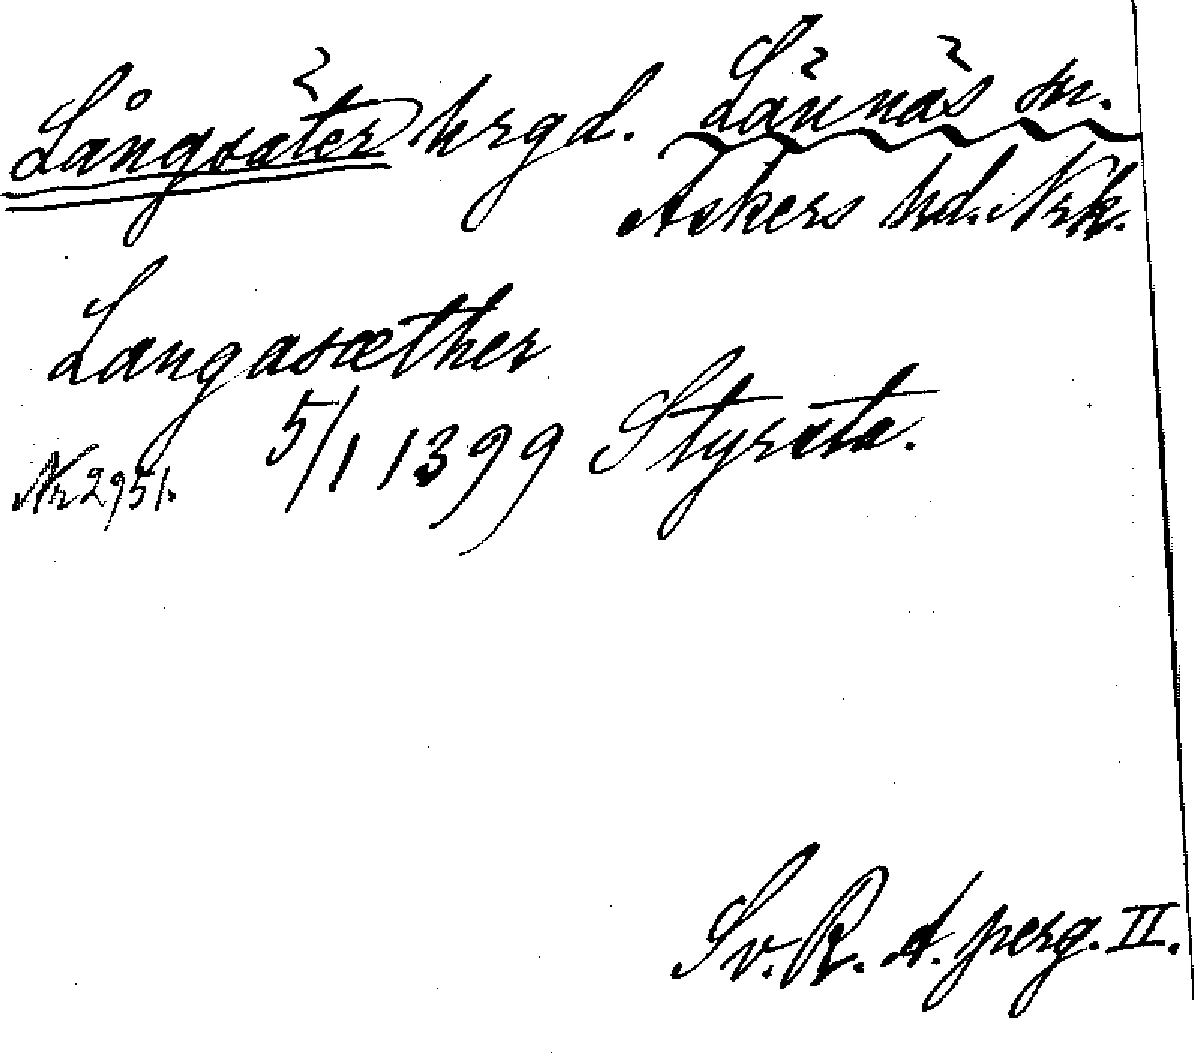 Långsäter hrgd. Lännäs sn.
Askers hd. Nrk.
Langasæther
Nr 2951. 5/1 1399 Styrsta.
Sv. R. A. perg. II.